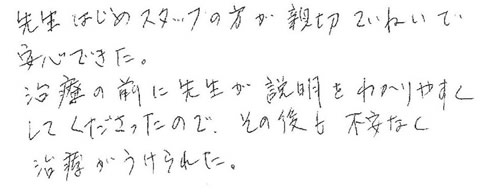 先生はじめスタッフの方が親切ていねいで
安心できた。
治療の前に先生が説明をわかりやすく
してくださったので、その後も不安なく
治療がうけられた。